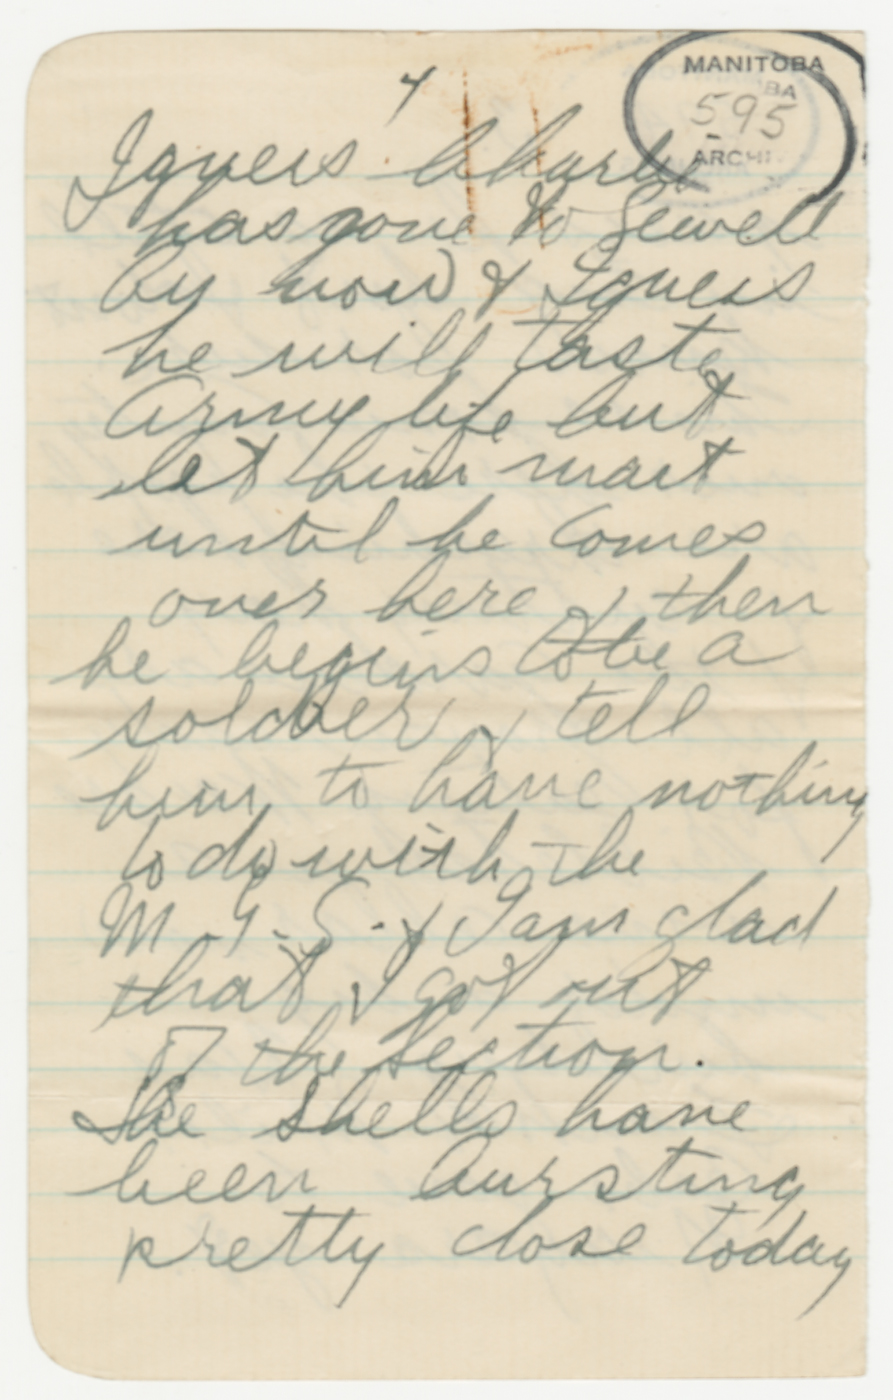 4
MANITOBA
595
ARCHIV
I guess Charlie
has gone to Sewell
by now & I guess
he will taste
Army life but
let him wait
until he comes
over here & then
he begins to be a
soldier & tell
him to have nothing
to do with the
M. G. S. & I am glad
that I got out
of the Section.
The shells have
been bursting
pretty close today